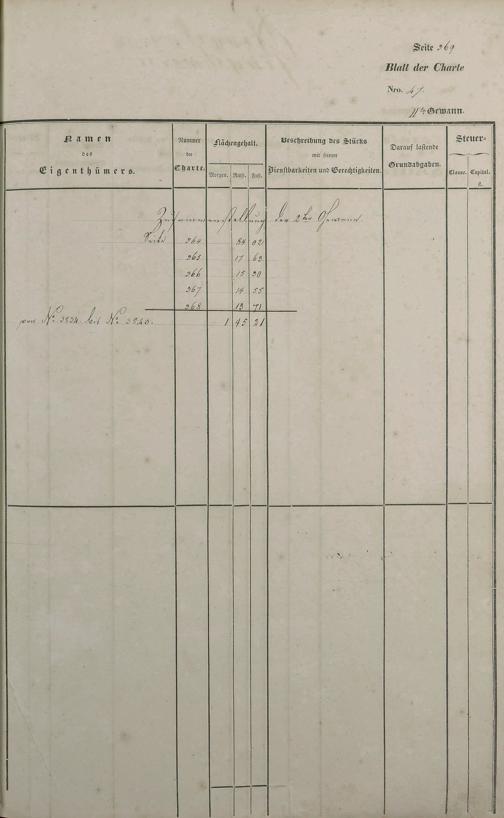 Seite 369
Blatt der Charte
Nro. 47.
Gewann.
Namen
des
Eigenthümers.
Nummer
der
Charte.
Flächengehalt.
Morgen. Ruth. Fuß.
Beschreibung des Stücks
mit seinen
Dienstbarkeiten und Gerechtigkeiten.
Darauf lastende
Grundabgaben.
Steuer-
Classe. Capital.
fl.
Zusammenstellung der 2ten Gewann.
Seite 364 84 02
365 17 63
366 15 30
367 14 55
368 13 71
von No. 3834 bis No. 3840. 1 45 21